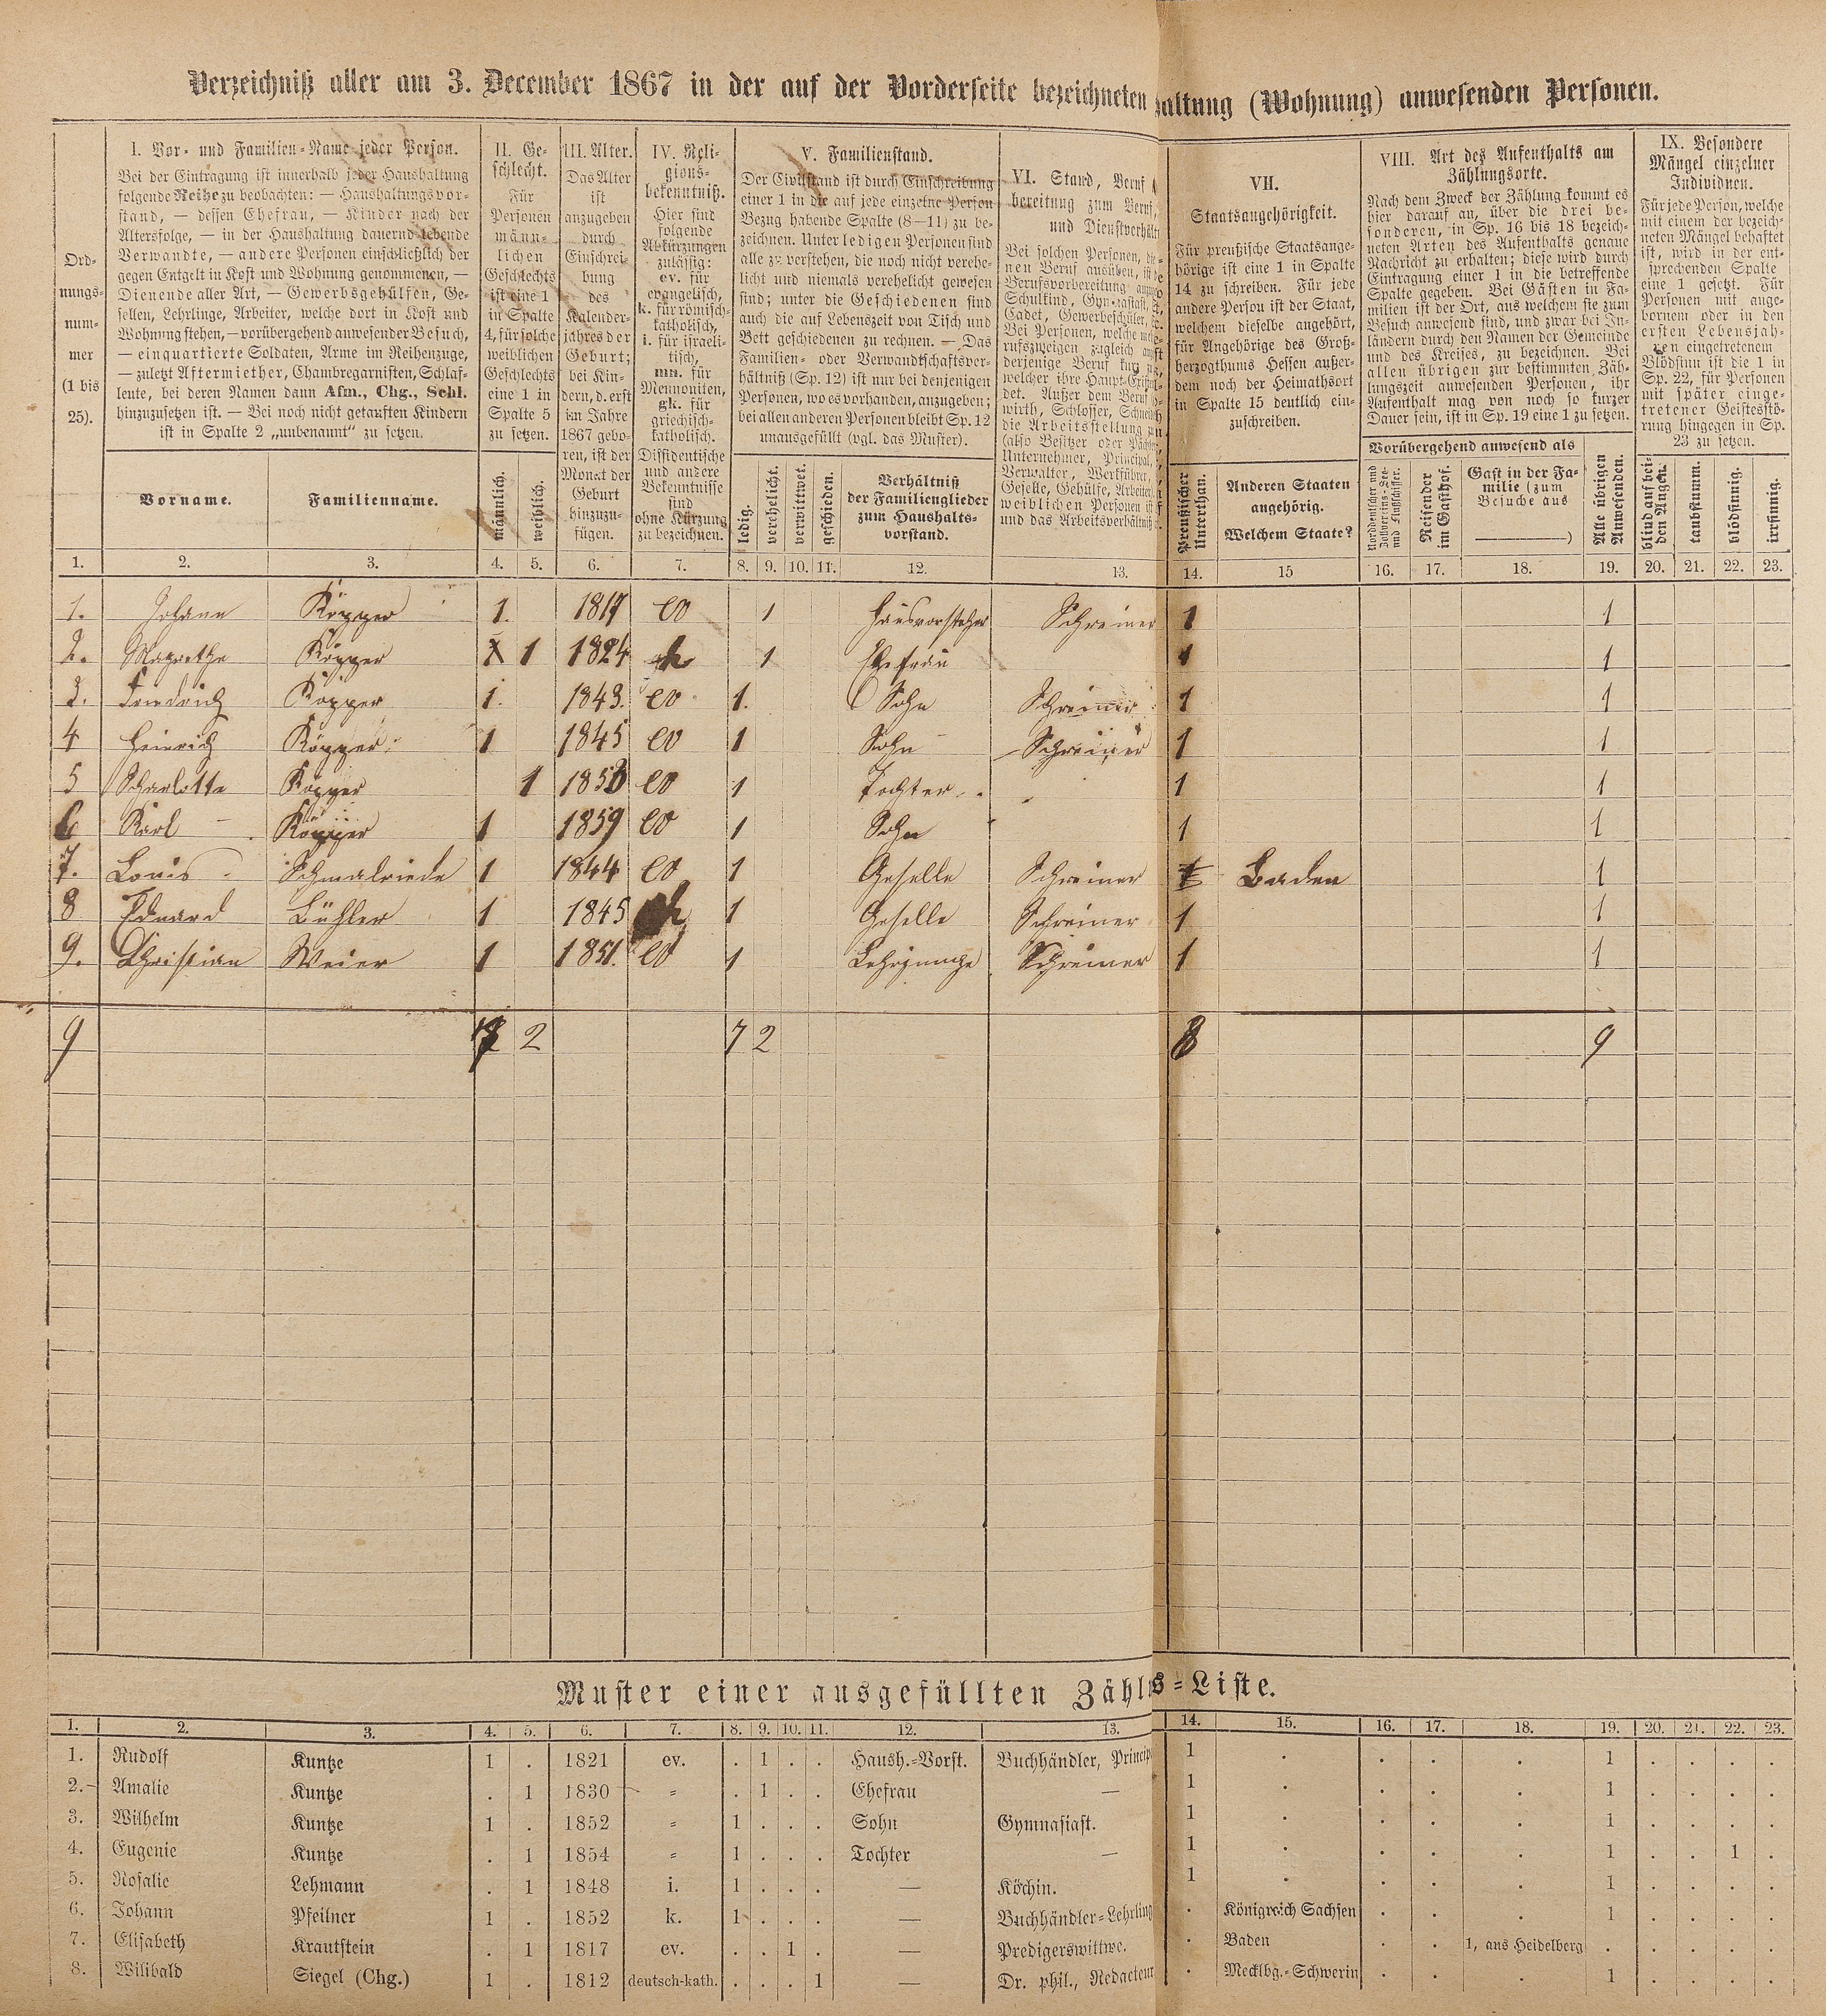 Verzeichniß aller am 3. December 1867 in der auf der Vorderseite bezeichneten haltung (Wohnung) anwesenden Personen.
Ord-
nungs-
num-
mer
(1 bis
25).
I. Vor- und Familien-Name jeder Person.
Bei der Eintragung ist innerhalb jeder Haushaltung
folgende Reihe zu beobachten: — Haushaltungsvor-
stand, — dessen Ehefrau, — Kinder nach der
Altersfolge, — in der Haushaltung dauernd lebende
Verwandte, — andere Personen einschließlich der
gegen Entgelt in Kost und Wohnung genommenen, —
Dienende aller Art, — Gewerbsgehülfen, Ge-
sellen, Lehrlinge, Arbeiter, welche dort in Kost und
Wohnung stehen, — vorübergehend anwesender Besuch,
— einquartierte Soldaten, Arme im Reihenzuge,
— zuletzt Aftermiether, Chambregarnisten, Schlaf-
leute, bei deren Namen dann Afm., Chg., Schl.
hinzuzusetzen ist. — Bei noch nicht getauften Kindern
ist in Spalte 2 „unbenannt“ zu setzen.
Vorname.
Familienname.
II. Ge-
schlecht.
Für
Personen
männ-
lichen
Geschlechts
ist eine 1
in Spalte
4, für solche
weiblichen
Geschlechts
eine 1 in
Spalte 5
zu setzen.
männlich.
weiblich.
III. Alter.
Das Alter
ist
anzugeben
durch
Einschrei-
bung
des
Kalender-
jahres der
Geburt;
bei Kin-
dern, d. erst
im Jahre
1867 gebo-
ren, ist der
Monat der
Geburt
hinzuzu-
fügen.
IV. Reli-
gions-
bekenntniß.
Hier sind
folgende
Abkürzungen
zulässig:
ev. für
evangelisch,
k. für römisch-
katholisch,
i. für israeli-
tisch,
mn. für
Mennoniten,
gk. für
griechisch-
katholisch.
Dissidentische
und andere
Bekenntnisse
sind
ohne Kürzung
zu bezeichnen.
V. Familienstand.
Der Civilstand ist durch Einschreibung
einer 1 in die auf jede einzelne Person
Bezug habende Spalte (8—11) zu be-
zeichnen. Unter ledigen Personen sind
alle zu verstehen, die noch nicht verehe-
licht und niemals verehelicht gewesen
sind; unter die Geschiedenen sind
auch die auf Lebenszeit von Tisch und
Bett geschiedenen zu rechnen. — Das
Familien- oder Verwandtschaftsver-
hältniß (Sp. 12) ist nur bei denjenigen
Personen, wo es vorhanden, anzugeben;
bei allen anderen Personen bleibt Sp. 12
unausgefüllt (vgl. das Muster).
ledig.
verehelicht.
verwittwet.
geschieden.
Verhältniß
der Familienglieder
zum Haushalts-
vorstand.
VI. Stand, Beruf
bereitung zum Beruf,
und Dienstverhält
Bei solchen Personen, die
nen Beruf ausüben, ist
Berufsvorbereitung
Schulkind, Gymnasiast,
Cadet, Gewerbeschüler,
Bei Personen, welche
rufszweigen zugleich
derjenige Beruf kurz
welcher ihre Haupt-
det. Außer dem Beruf
wirth, Schlosser, Schneid
die Arbeitsstellung
(also Besitzer oder Pächter
Unternehmer, Principal,
Verwalter, Werkführer,
Geselle, Gehülfe, Arbeiter
weiblichen Personen ist
und das Arbeitsverhältniß
VII.
Staatsangehörigkeit.
Für preußische Staatsange-
hörige ist eine 1 in Spalte
14 zu schreiben. Für jede
andere Person ist der Staat,
welchem dieselbe angehört,
für Angehörige des Groß-
herzogthums Hessen außer-
dem noch der Heimathsort
in Spalte 15 deutlich ein-
zuschreiben.
Preußischer
Unterthan.
Anderen Staaten
angehörig.
Welchem Staate?
VIII. Art des Aufenthalts am
Zählungsorte.
Nach dem Zweck der Zählung kommt es
hier darauf an, über die drei be-
sonderen, in Sp. 16 bis 18 bezeich-
neten Arten des Aufenthalts genaue
Nachricht zu erhalten; diese wird durch
Eintragung einer 1 in die betreffende
Spalte gegeben. Bei Gästen in Fa-
milien ist der Ort, aus welchem sie zum
Besuch anwesend sind, und zwar bei In-
ländern durch den Namen der Gemeinde
und des Kreises, zu bezeichnen. Bei
allen übrigen zur bestimmten Zäh-
lungszeit anwesenden Personen, ihr
Aufenthalt mag von noch so kurzer
Dauer sein, ist in Sp. 19 eine 1 zu setzen.
Vorübergehend anwesend als
Norddeutscher und
Zollvereins-See-
und Flußschiffer.
Reisender
im Gasthof.
Gast in der Fa-
milie (zum
Besuche aus
)
Alle übrigen
Anwesenden.
IX. Besondere
Mängel einzelner
Individuen.
Für jede Person, welche
mit einem der bezeich-
neten Mängel behaftet
ist, wird in der ent-
sprechenden Spalte
eine 1 gesetzt. Für
Personen mit ange-
bornem oder in den
ersten Lebensjah-
ren eingetretenem
Blödsinn ist die 1 in
Sp. 22, für Personen
mit später einge-
tretener Geistesstö-
rung hingegen in Sp.
23 zu setzen.
blind auf bei-
den Augen.
taubstumm.
blödsinnig.
irrsinnig.
1. 2. 3. 4. 5. 6. 7. 8. 9. 10. 11. 12. 13. 14. 15 16. 17. 18. 19. 20. 21. 22. 23.
1. Johann Köpper 1. 1817 ev 1 Hausvorsteher Schreiner 1 1
2. Magrethe Köpper 1 1824 k 1 Ehefrau 1 1
3. Friedrich Köpper 1. 1843. ev 1. Sohn Schreiner 1 1
4 Heinrich Köpper 1 1845 ev 1 Sohn Schreiner 1 1
5 Scharlotte Köpper 1 1853 ev 1 Tochter 1 1
6 Karl Köpper 1 1859 ev 1 Sohn 1 1
7. Louis Schmalriede 1 1844 ev 1 Geselle Schreiner Baden 1
8 Eduard Bühler 1 1845 k 1 Geselle Schreiner 1 1
9. Christian Weier 1 1851. ev 1 Lehrjunge Schreiner 1 1
9 7 2 7 2 8 9
Muster einer ausgefüllten Zähls-Liste.
1. 2. 3. 4. 5. 6. 7. 8. 9. 10. 11. 12. 13. 14. 15. 16. 17. 18. 19. 20. 21. 22. 23.
1. Rudolf Kuntze 1 . 1821 ev. . 1 . . Haush.-Vorst. Buchhändler, Princip 1 . . . . 1 . . . .
2. Amalie Kuntze . 1 1830 = . 1 . . Ehefrau — 1 . . . . 1 . . . .
3. Wilhelm Kuntze 1 . 1852 = 1 . . . Sohn Gymnasiast. 1 . . . . 1 . . . .
4. Eugenie Kuntze . 1 1854 = 1 . . . Tochter — 1 . . . . 1 . . 1 .
5. Rosalie Lehmann . 1 1848 i. 1 . . . — Köchin. 1 . . . . 1 . . . .
6. Johann Pfeilner 1 . 1852 k. 1 . . . — Buchhändler-Lehrling . Königreich Sachsen . . . 1 . . . .
7. Elisabeth Krautstein . 1 1817 ev. . . 1 . — Predigerswittwe. . Baden . . 1, aus Heidelberg . . . . .
8. Wilibald Siegel (Chg.) 1 . 1812 deutsch-kath. . . . 1 — Dr. phil., Redacteur . Mecklbg.-Schwerin . . . 1 . . . .